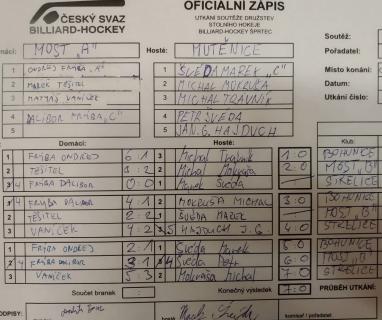 ČESKÝ SVAZ
BILLIARD-HOCKEY
OFICIÁLNÍ ZÁPIS
UTKÁNÍ SOUTĚŽE DRUŽSTEV
STOLNÍHO HOKEJE
BILLIARD-HOCKEY ŠPRTEC
Soutěž:
Pořadatel:
Místo konání:
Datum:
Utkání číslo:
MOST "A"
Hosté: MUTĚNICE
1 ONDŘEJ FRÝBA "A"
2 MAREK TEŠITEL
3 MATYÁŠ VANÍČEK
4 DALIBOR FRÝBA "C"
5
1 ŠVÉDA MAREK "C"
2 MICHAL MOKRUŠA
3 MICHAL TRÁVNÍK
4 PETR ŠVÉDA
5 JAN G. HAJDUCH
Domácí: Hosté: Klub:
1 FRÝBA ONDŘEJ 6 1 3 Michal Trávník 1:0 BOHUNICE
2 TEŠITEL 2 Michal Mokruša 2:0 MOST "B"
4 FRÝBA DALIBOR 0:0 1 Marek Švéda STŘELICE
4 FRÝBA DALIBOR 4 1 2 MOKRUŠA MICHAL 3:0 BOHUNICE
2 TEŠITEL 2:2 ŠVÉDA MAREK MOST "B"
3 VANÍČEK 5 HAJDUCH J. G. 4:0 STŘELICE
1 FRÝBA ONDŘEJ 2 1 1 Švéda Marek 5:0 BOHUNICE
4 FRÝBA DALIBOR 3 1 4 Švéda Petr 6:0 MOST "B"
3 VANÍČEK 5 3 2 Mokruša Michal 7:0 STŘELICE
Součet branek Konečný výsledek 7:0 PRŮBĚH UTKÁNÍ: